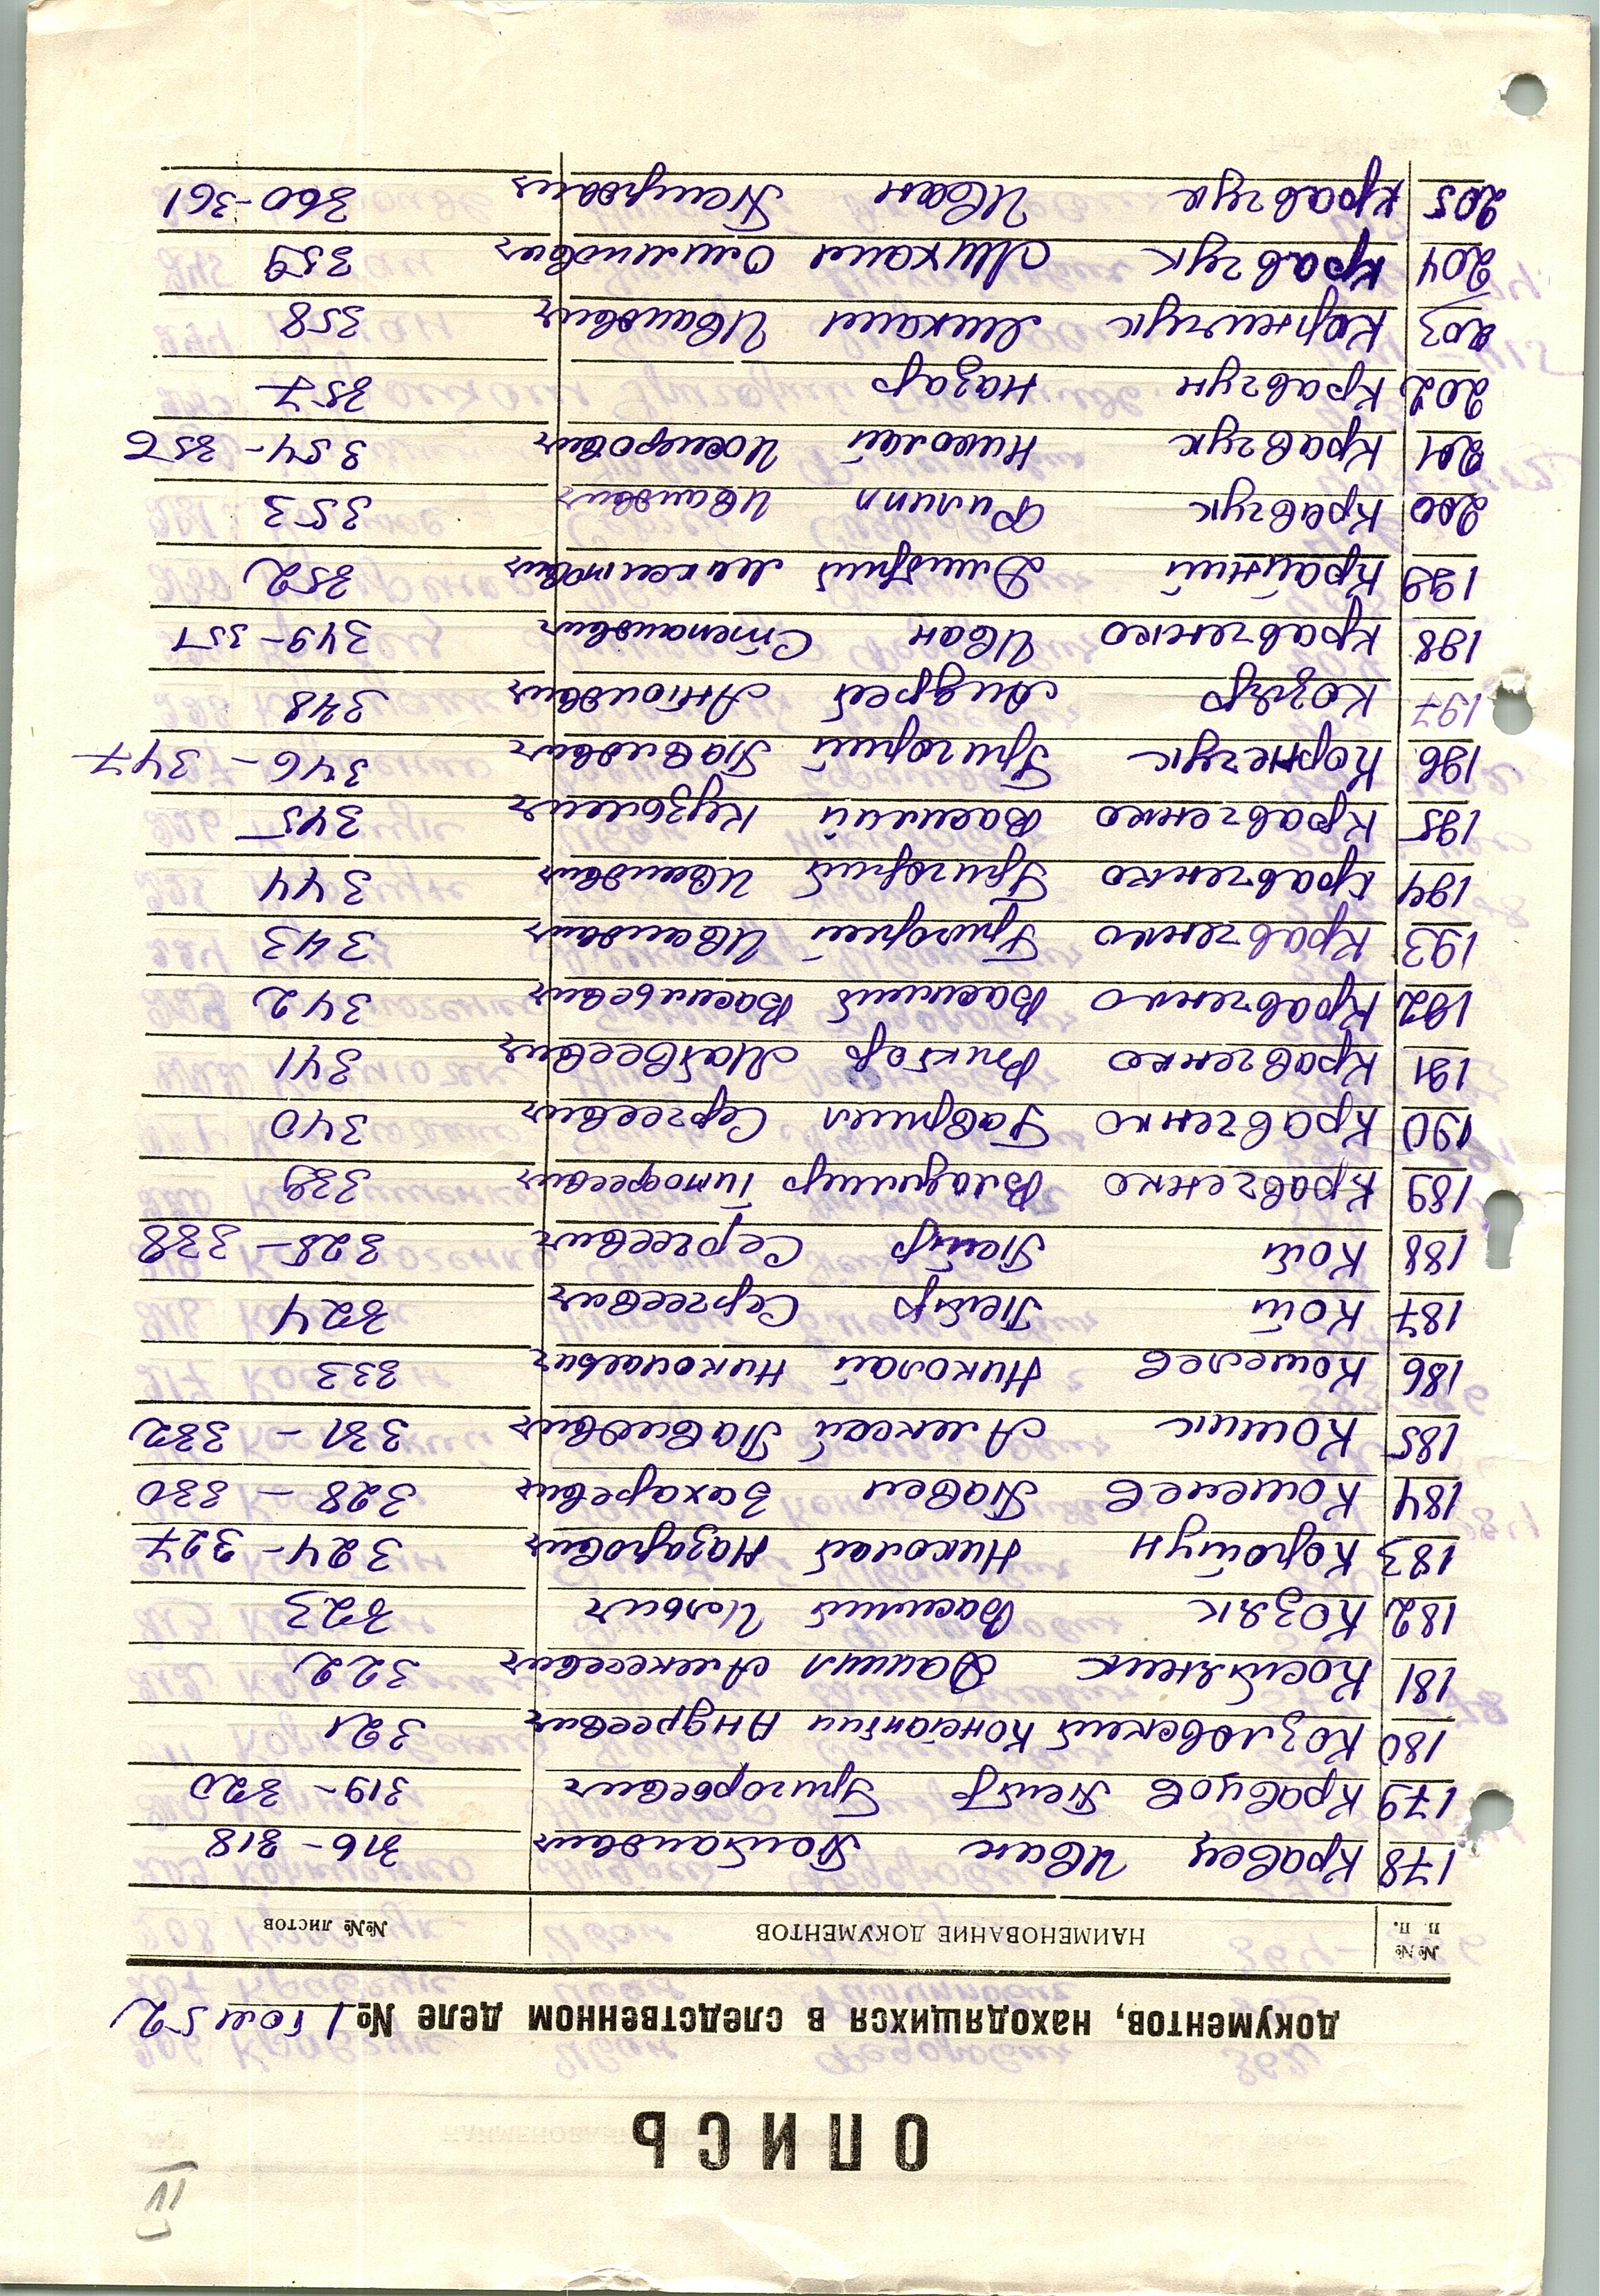 VI
ОПИСЬ
документов, находящихся в следственном деле № 1 том 52
№№ п. п. НАИМЕНОВАНИЕ ДОКУМЕНТОВ №№ листов
178 Кравец Иван 316-318
179 Кравцов Петр Григорьевич 319-320
180 Козловский Константин Андреевич 321
181 Костянюк Данил Алексеевич 322
182 Козяк Василий Ильич 323
183 Коройчун Николай Назарович 324-327
184 Кошелев Павел Захарович 328-330
185 Кошик Алексей Павлович 331-332
186 Кошелев Николай Николаевич 333
187 Кот Петр Сергеевич 324
188 Кот Петр Сергеевич 325-338
189 Кравченко Владимир Тимофеевич 339
190 Кравченко Гавриил Сергеевич 340
191 Кравченко Виктор Матвеевич 341
192 Кравченко Василий Васильевич 342
193 Кравченко Григорий Иванович 343
194 Кравченко Григорий Иванович 344
195 Кравченко Василий Кузьмич 345
196 Корнечук Григорий Павлович 346-347
197 Козяр Андрей Антонович 348
198 Кравченко Иван Степанович 349-351
199 Крайний Дмитрий Максимович 352
200 Кравчук Филипп Иванович 353
201 Кравчук Николай 354-356
202 Кравчун Назар 357
203 Корнийчук Михаил Иванович 358
204 Кравчук Михаил 359
205 Кравчук Иван 360-361